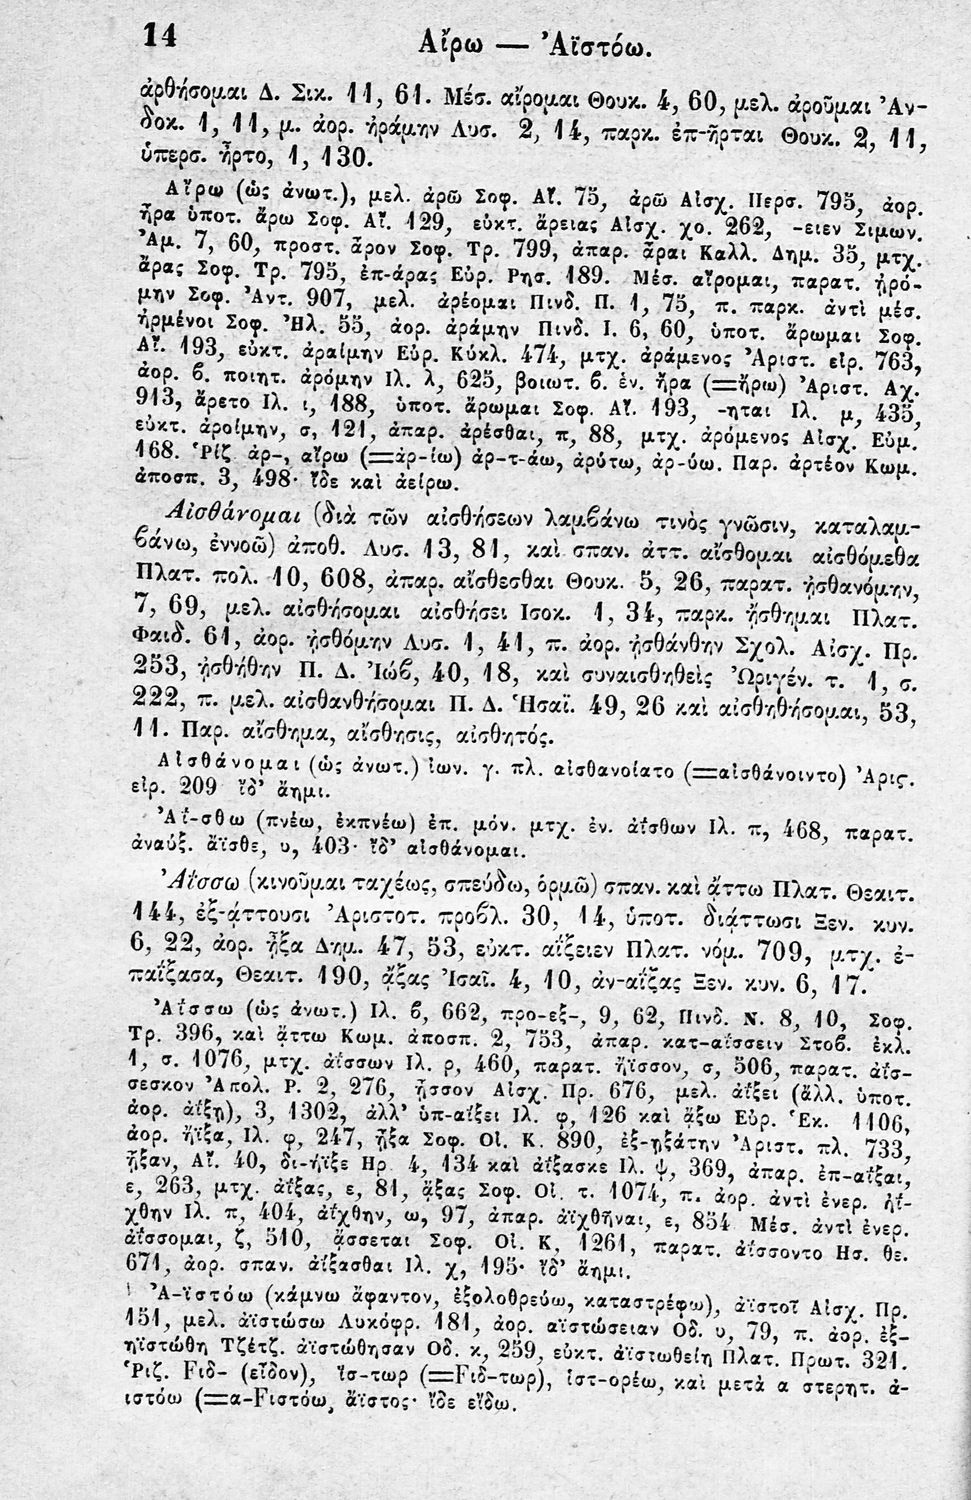 14
Αἴρω — Ἀϊστόω.
ἀρθήσομαι Δ. Σικ. 11, 61. Μέσ. αἴρομαι Θουκ. 4, 60, μελ. ἀροῦμαι Ἀν-
δοκ. 1, 11, μ. ἀορ. ἠράμην Λυσ. 2, 14, παρκ. ἐπ-ῆρται Θουκ. 2, 11,
ὑπερσ. ἦρτο, 1, 130.
Αἴρω (ὡς ἀνωτ.), μελ. ἀρῶ Σοφ. Αἴ. 75, ἀρῶ Αἰσχ. Περσ. 795, ἀορ.
ἦρα ὑποτ. ἄρω Σοφ. Αἴ. 129, εὐκτ. ἄρειας Αἰσχ. χο. 262, -ειεν Σιμων.
Ἀμ. 7, 60, προστ. ἆρον Σοφ. Τρ. 799, ἀπαρ. ἆραι Καλλ. Δημ. 35, μτχ.
ἄρας Σοφ. Τρ. 795, ἐπ-άρας Εὐρ. Ρησ. 189. Μέσ. αἴρομαι, παρατ. ᾐρό-
μην Σοφ. Ἀντ. 907, μελ. ἀρέομαι Πινδ. Π. 1, 75, π. παρκ. ἀντὶ μέσ.
ἠρμένοι Σοφ. Ἠλ. 55, ἀορ. ἀράμην Πινδ. Ι. 6, 60, ὑποτ. ἄρωμαι Σοφ.
Αἴ. 193, εὐκτ. ἀραίμην Εὐρ. Κύκλ. 474, μτχ. ἀράμενος Ἀριστ. εἰρ. 763,
ἀορ. ϐ. ποιητ. ἀρόμην Ιλ. λ, 625, βοιωτ. ϐ. ἑν. ἦρα (=ἤρω) Ἀριστ. Αχ.
913, ἄρετο Ιλ. ι, 188, ὑποτ. ἄρωμαι Σοφ. Αἴ. 193, -ηται Ιλ. μ, 435,
εὐκτ. ἀροίμην, σ, 121, ἀπαρ. ἀρέσθαι, π, 88, μτχ. ἀρόμενος Αἰσχ. Εὐμ.
168. Ῥίζ ἀρ-, αἴρω (=ἀρ-ίω) ἀρ-τ-άω, ἀρύτω, ἀρ-ύω. Παρ. ἀρτέον Κωμ.
ἀποσπ. 3, 498· ἴδε καὶ ἀείρω.
Αἰσθάνομαι (διὰ τῶν αἰσθήσεων λαμϐάνω τινὸς γνῶσιν, καταλαμ-
ϐάνω, ἐννοῶ) ἀποθ. Λυσ. 13, 81, καὶ σπαν. ἀττ. αἴσθομαι αἰσθόμεθα
Πλατ. πολ. 10, 608, ἀπαρ. αἴσθεσθαι Θουκ. 5, 26, παρατ. ᾐσθανόμην,
7, 69, μελ. αἰσθήσομαι αἰσθήσει Ισοκ. 1, 34, παρκ. ᾔσθημαι Πλατ.
Φαιδ. 61, ἀορ. ᾐσθόμην Λυσ. 1, 41, π. ἀορ. ᾐσθάνθην Σχολ. Αἰσχ. Πρ.
253, ᾐσθήθην Π. Δ. Ἰώϐ, 40, 18, καὶ συναισθηθεὶς Ὠριγέν. τ. 1, σ.
222, π. μελ. αἰσθανθήσομαι Π. Δ. Ἡσαΐ. 49, 26 καὶ αἰσθηθήσομαι, 53,
11. Παρ. αἴσθημα, αἴσθησις, αἰσθητός.
Αἰσθάνομαι (ὡς ἀνωτ.) ἰων. γ. πλ. αἰσθανοίατο (=αἰσθάνοιντο) Ἀρις.
εἰρ. 209 ἴδ' ἄημι.
Ἀΐ-σθω (πνέω, ἐκπνέω) ἐπ. μόν. μτχ. ἑν. ἀΐσθων Ιλ. π, 468, παρατ.
ἀναύξ. ἄϊσθε, υ, 403· ἴδ' αἰσθάνομαι.
Ἀΐσσω (κινοῦμαι ταχέως, σπεύδω, ὁρμῶ) σπαν. καὶ ᾄττω Πλατ. Θεαιτ.
144, ἐξ-ᾴττουσι Ἀριστοτ. προϐλ. 30, 14, ὑποτ. διᾴττωσι Ξεν. κυν.
6, 22, ἀορ. ᾖξα Δημ. 47, 53, εὐκτ. αἴξειεν Πλατ. νόμ. 709, μτχ. ἐ-
παΐξασα, Θεαιτ. 190, ᾄξας Ἰσαῖ. 4, 10, ἀν-αΐξας Ξεν. κυν. 6, 17.
Ἀΐσσω (ὡς ἀνωτ.) Ιλ. ϐ, 662, προ-εξ-, 9, 62, Πινδ. Ν. 8, 10, Σοφ.
Τρ. 396, καὶ ᾄττω Κωμ. ἀποσπ. 2, 753, ἀπαρ. κατ-αΐσσειν Στοϐ. ἐκλ.
1, σ. 1076, μτχ. ἀΐσσων Ιλ. ρ, 460, παρατ. ἤϊσσον, σ, 506, παρατ. ἀΐσ-
σεσκον Ἀπολ. Ρ. 2, 276, ᾖσσον Αἰσχ. Πρ. 676, μελ. ἀΐξει (ἄλλ. ὑποτ.
ἀορ. ἀΐξῃ), 3, 1302, ἀλλ' ὑπ-αΐξει Ιλ. φ, 126 καὶ ᾄξω Εὐρ. Ἑκ. 1106,
ἀορ. ἤϊξα, Ιλ. φ, 247, ᾖξα Σοφ. Οἰ. Κ. 890, ἐξ-ῃξάτην Ἀριστ. πλ. 733,
ᾖξαν, Αἴ. 40, δι-ήϊξε Ηρ. 4, 134 καὶ ἀΐξασκε Ιλ. ψ, 369, ἀπαρ. ἐπ-αΐξαι,
ε, 263, μτχ. ἀΐξας, ε, 81, ᾄξας Σοφ. Οἰ. τ. 1074, π. ἀορ. ἀντὶ ἐνερ. ἠΐ-
χθην Ιλ. π, 404, ἀΐχθην, ω, 97, ἀπαρ. ἀϊχθῆναι, ε, 854 Μέσ. ἀντὶ ἐνερ.
ἀΐσσομαι, ζ, 510, ᾄσσεται Σοφ. Οἰ. Κ, 1261, παρατ. ἀΐσσοντο Ησ. θε.
671, ἀορ. σπαν. ἀΐξασθαι Ιλ. χ, 195· ἴδ' ἄημι.
Ἀ-ϊστόω (κάμνω ἄφαντον, ἐξολοθρεύω, καταστρέφω), ἀϊστοῖ Αἰσχ. Πρ.
151, μελ. ἀϊστώσω Λυκόφρ. 181, ἀορ. αϊστώσειαν Οδ. υ, 79, π. ἀορ. ἐξ-
ηϊστώθη Τζέτζ. ἀϊστώθησαν Οδ. κ, 259, εὐκτ. ἀϊστωθείη Πλατ. Πρωτ. 321.
Ῥιζ. Ϝιδ- (εἶδον), ἵσ-τωρ (=Ϝιδ-τωρ), ἱστ-ορέω, καὶ μετὰ α στερητ. ἀ-
ιστόω (=α-Ϝιστόω, ἄϊστος· ἴδε εἴδω.